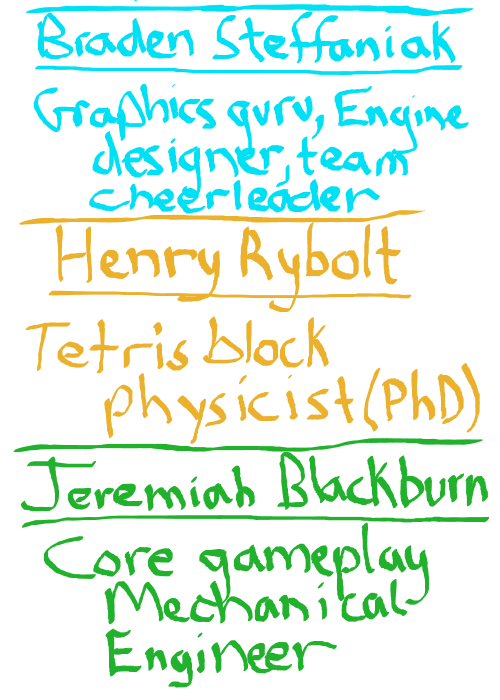 Braden Steffaniak
Graphics guru, Engine
designer, team
cheerleader
Henry Rybolt
Tetris block
physicist (PhD)
Jeremiah Blackburn
Core gameplay
Mechanical
Engineer